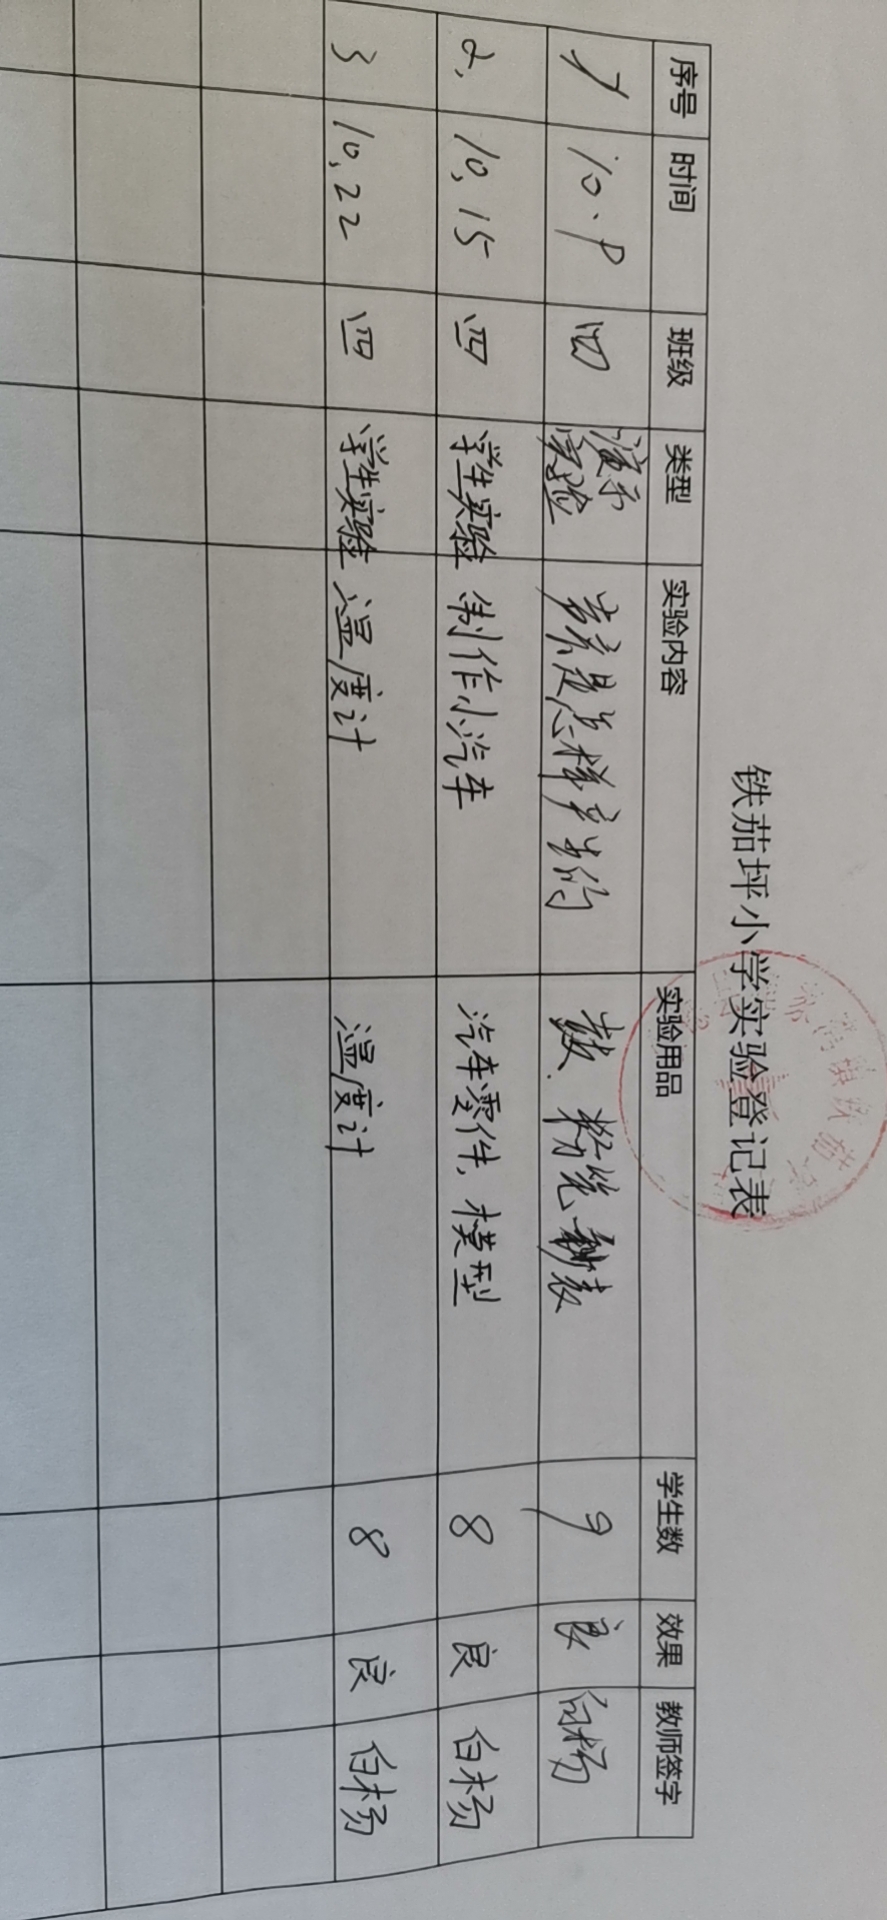 铁茄坪小学实验登记表
序号 时间 班级 类型 实验内容 实验用品 学生数 效果 教师签字
1 10.9 四 演示实验 声音是怎样产生的 鼓.粉笔 表 9 良 白杨
2. 10,15 四 学生实验 制作小汽车 汽车零件,模型 8 良 白杨
3 10,22 四 学生实验 温度计 温度计 8 良 白杨